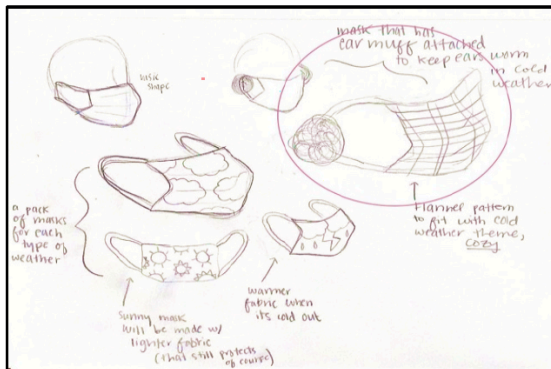 basic
shape
mask that has
ear muff attached
to keep ears warm
in cold
weather
a pack
of masks
for each
type of
weather
Flannel pattern
to fit with cold
weather theme,
cozy
warmer
fabric when
its cold out
Sunny mask
will be made w/
lighter fabric
(that still protects
of course)